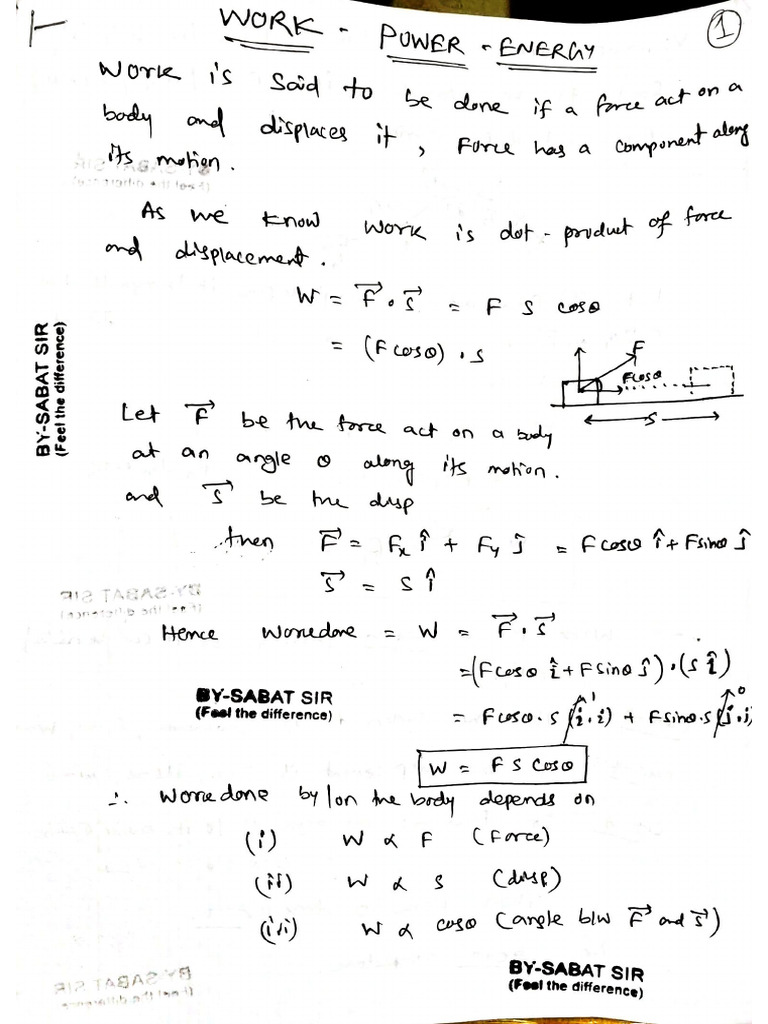 WORK - POWER - ENERGY
1
Work is said to be done if a force act on a
body and displaces it, Force has a component along
its motion.
As we know work is dot-product of force
and displacement.
W = F⃗ . s⃗ = F S cosθ
= (F cosθ) . s
F
Fcosθ
S
BY-SABAT SIR
(Feel the difference)
Let F⃗ be the force act on a body
at an angle θ along its motion.
and S⃗ be the disp
then F⃗ = Fx î + Fy ĵ = Fcosθ î + Fsinθ ĵ
S⃗ = S î
Hence workdone = W = F⃗ . S⃗
= (Fcosθ î + Fsinθ ĵ) . (S î)
BY-SABAT SIR
(Feel the difference)
= Fcosθ.s (i.i) 1 + Fsinθ.s (j.i) 0
W = F S Cosθ
∴ Workdone by/on the body depends on
(i) W ∝ F (Force)
(ii) W ∝ S (disp)
(iii) W ∝ cosθ (angle b/w F⃗ and S⃗)
BY-SABAT SIR
(Feel the difference)